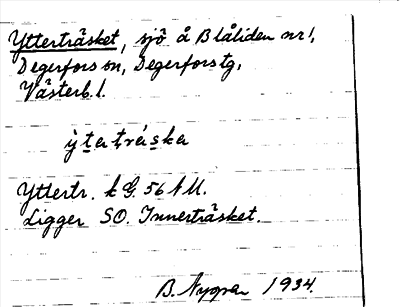 Ytterträsket, sjö å Blåliden nr 1,
Degerfors sn, Degerfors tg,
Västerb. l.
ỳtatrȧska
Yttertr. k G. 56 NU.
Ligger SO. Innerträsket.
B. Nygren 1934.